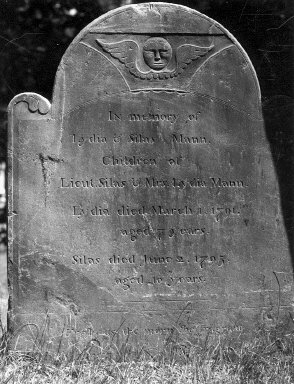 In memory of
Lydia & Silas Mann.
Children of
Lieut. Silas & Mrs. Lydia Mann.
Lydia died March
aged years.
Silas died June 2, 1795,
aged years.